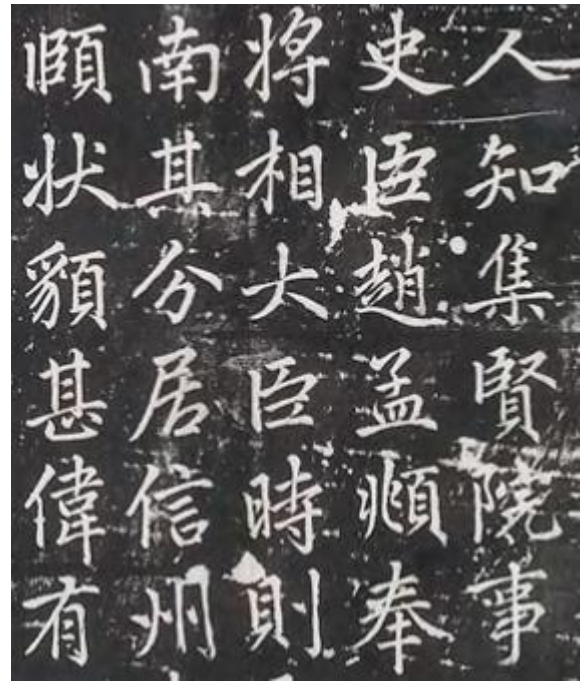 人知集賢院事
史臣趙孟頫奉
將相大臣時則
南其分居信州
頤狀貌甚偉有